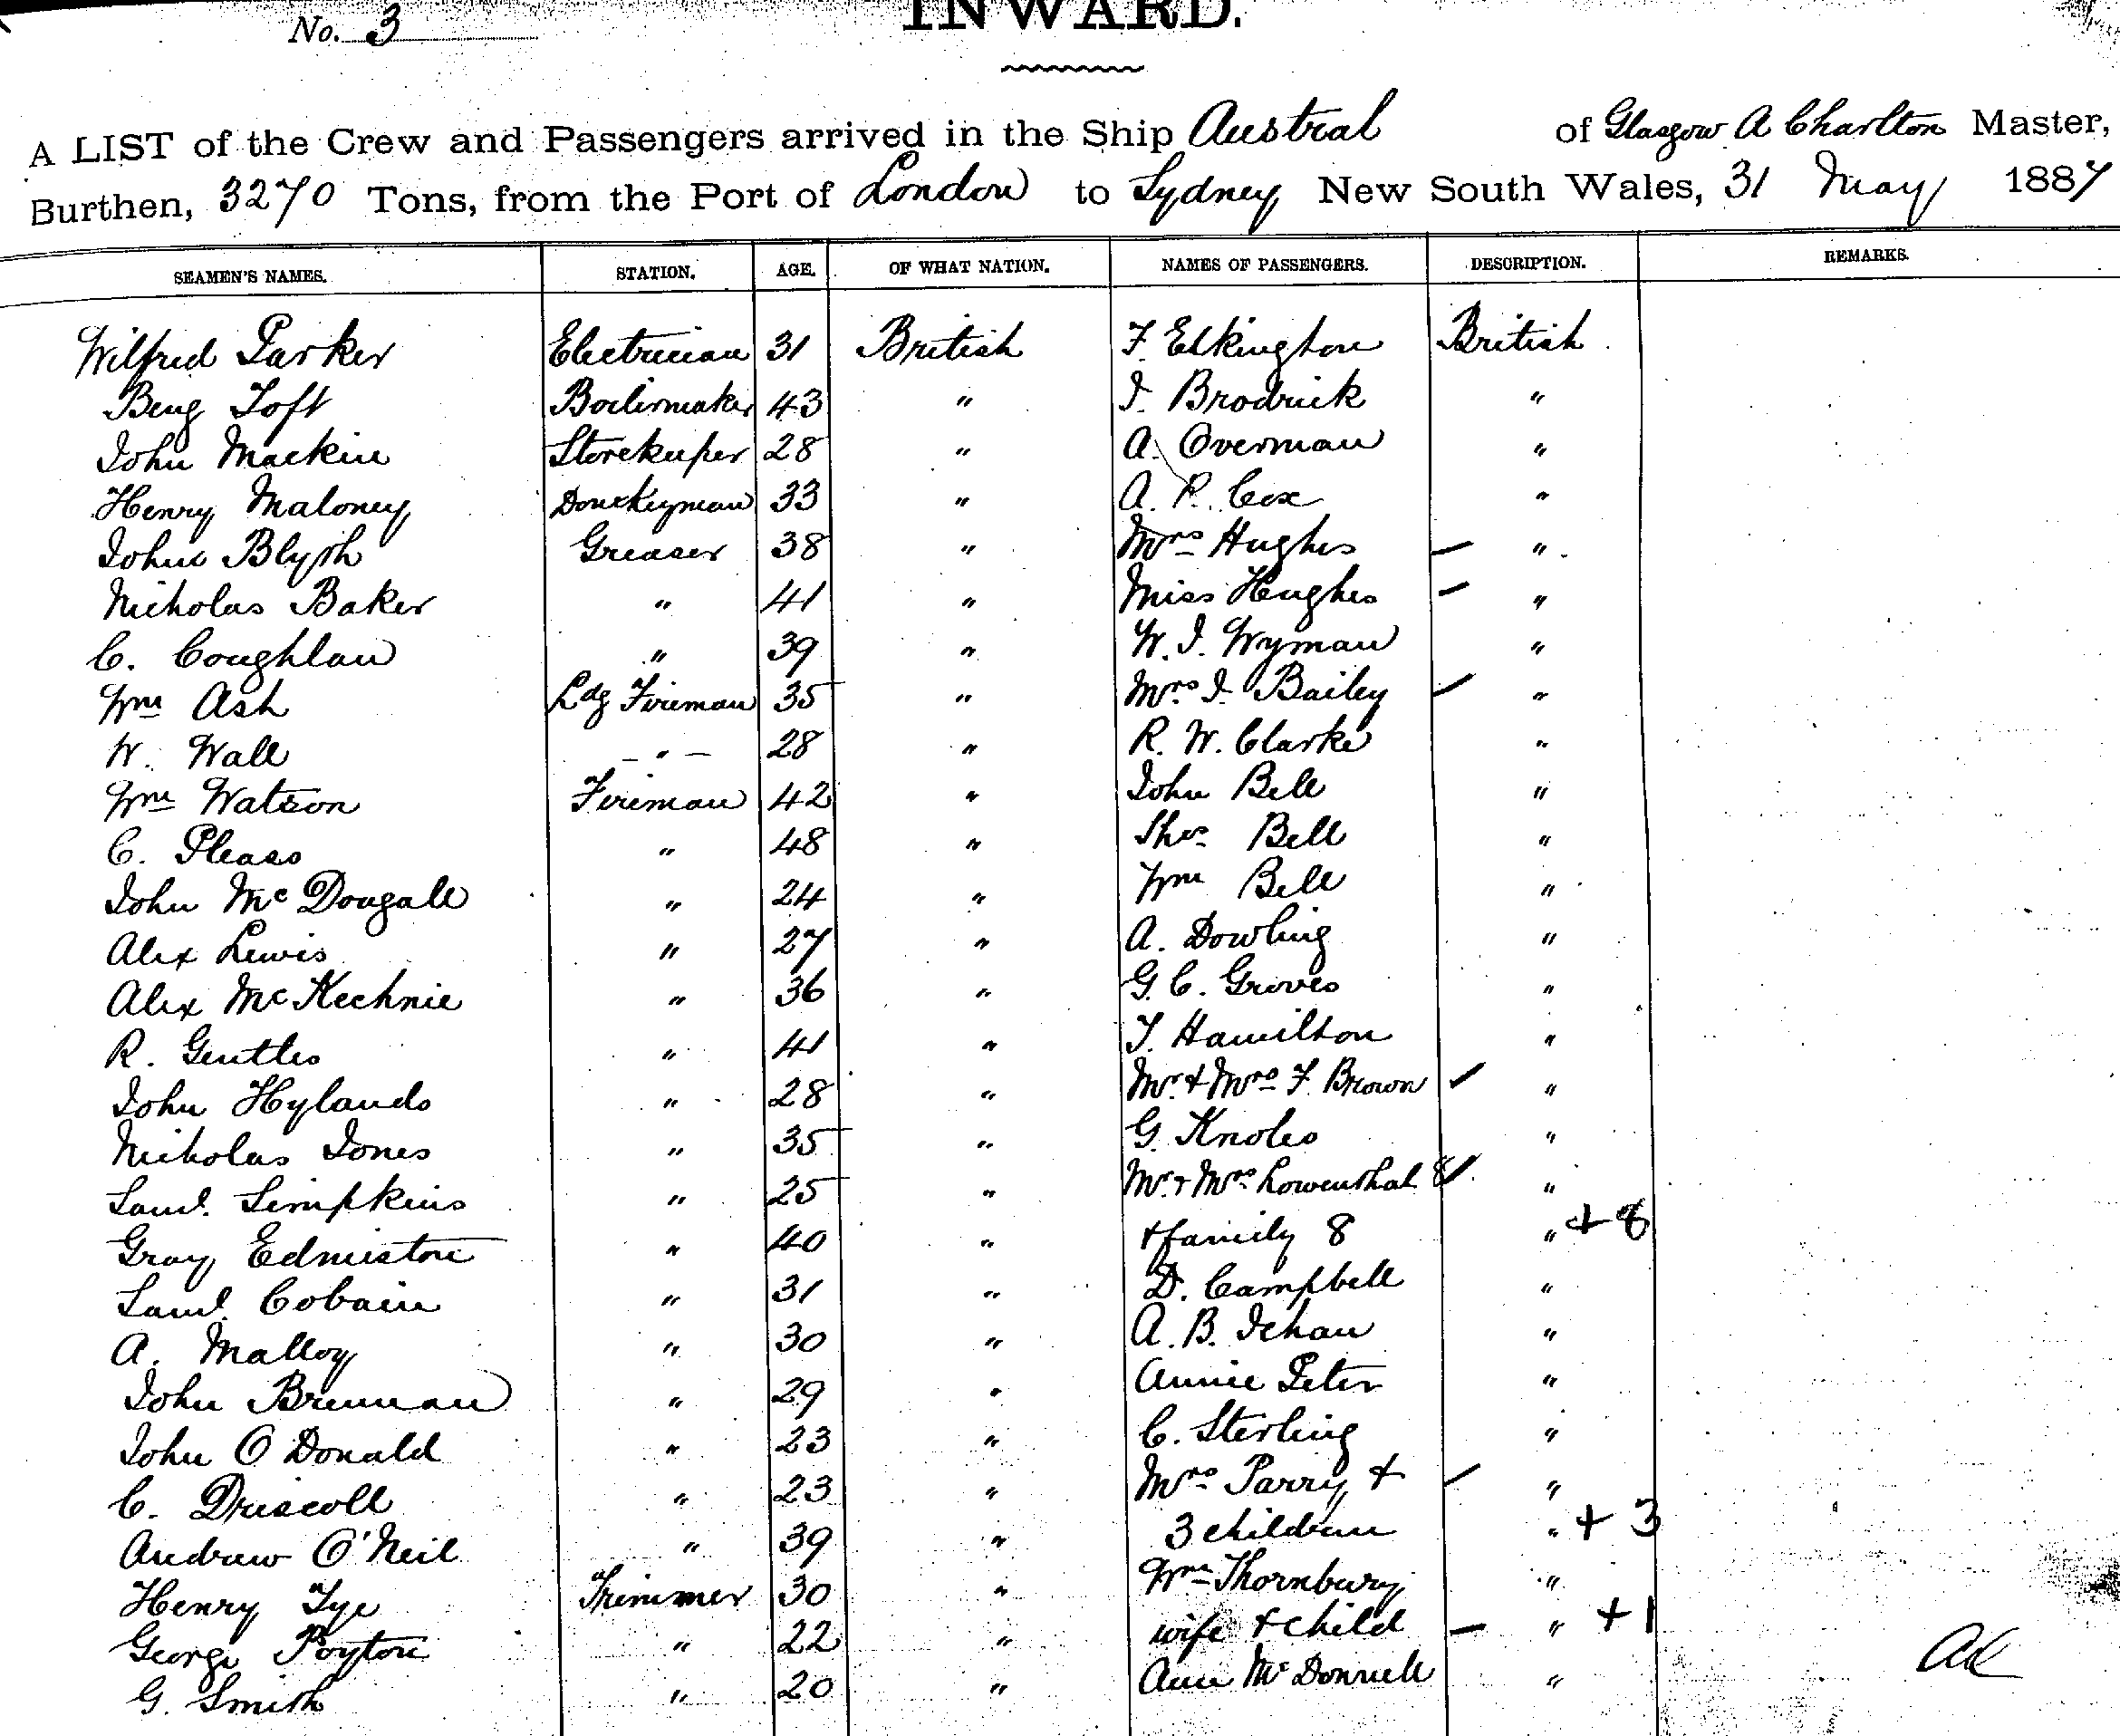 No. 3
INWARD.
A LIST of the Crew and Passengers arrived in the Ship Austral of Glasgow A Charlton Master,
Burthen, 3270 Tons, from the Port of London to Sydney New South Wales, 31 May 1887
SEAMEN'S NAMES. STATION. AGE. OF WHAT NATION. NAMES OF PASSENGERS. DESCRIPTION. REMARKS.
Wilfred Parker Electrician 31 British F. Elkington British
Benj Toft Boilermaker 43 " J. Brodrick "
John Mackin Storekeeper 28 " A. Overman "
Henry Maloney Donkeyman 33 " A. P. Cox "
John Blyth Greaser 38 " Mrs Hughes "
Nicholas Baker " 41 " Miss Hughes "
C. Coughlan " 39 " W. J. Wyman "
Wm Ash Ldg Fireman 35 " Mrs J. Bailey "
W. Wall " 28 " R. W. Clarke "
Wm Watson Fireman 42 " John Bell "
C. Pleass " 48 " Thos Bell "
John McDougall " 24 " Wm Bell "
Alex Lewis " 27 " A. Dowling "
Alex McKechnie " 36 " G. C. Groves "
R. Gentles " 41 " T. Hamilton "
John Hylands " 28 " Mr & Mrs F. Brown "
Nicholas Jones " 35 " G. Knoles "
Saml. Simpkins " 25 " Mr & Mrs Lowenthal "
Gray Edmiston " 40 " & family 8 " + 8
Saml. Cobain " 31 " D. Campbell "
A. Malloy " 30 " A. B. "
John Brennan " 29 " Annie Peter "
John O Donald " 23 " C. Sterling "
C. Driscoll " 23 " Mrs Parry & "
Andrew O'Neil " 39 " 3 children " + 3
Henry Tye Trimmer 30 " Wm Thornbury "
George Poyton " 22 " wife & child " + 1
G. Smith " 20 " Ann McDonnell "